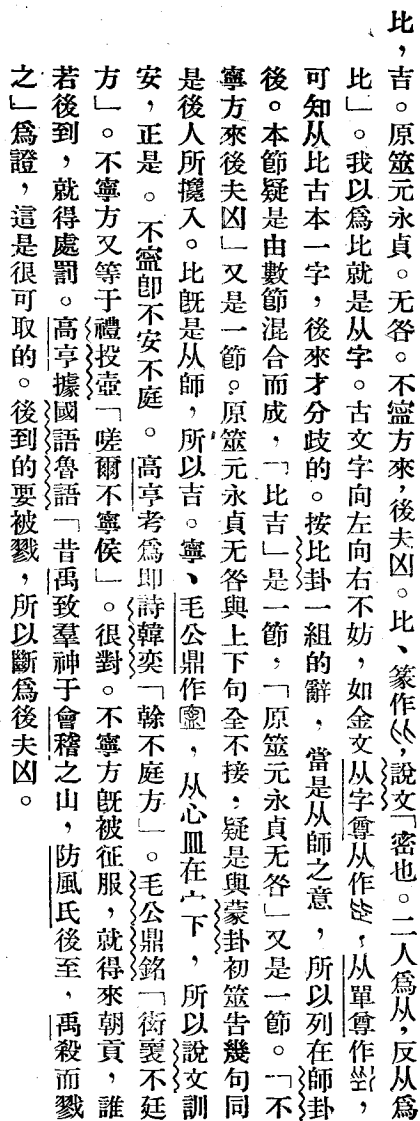 比，吉。原筮元永貞。无咎。不寍方來，後夫凶。比、篆作，說文「密也。二人爲从，反从爲
比」。我以爲比就是从字。古文字向左向右不妨，如金文从字尊从作，从單尊作，
可知从比古本一字，後來才分歧的。按比卦一組的辭，當是从師之意，所以列在師卦
後。本節疑是由數節混合而成，「比吉」是一節，「原筮元永貞无咎」又是一節。「不
寧方來後夫凶」又是一節。原筮元永貞无咎與上下句全不接，疑是與蒙卦初筮告幾句同
是後人所攙入。比旣是从師，所以吉。寧、毛公鼎作，从心皿在宀下，所以說文訓
安，正是。不寍卽不安不庭。高亨考爲即詩韓奕「榦不庭方」。毛公鼎銘「銜褱不廷
方」。不寧方又等于禮投壺「嗟爾不寧侯」。很對。不寧方旣被征服，就得來朝貢，誰
若後到，就得處罰。高亨據國語魯語「昔禹致羣神于會稽之山，防風氏後至，禹殺而戮
之」爲證，這是很可取的。後到的要被戮，所以斷爲後夫凶。